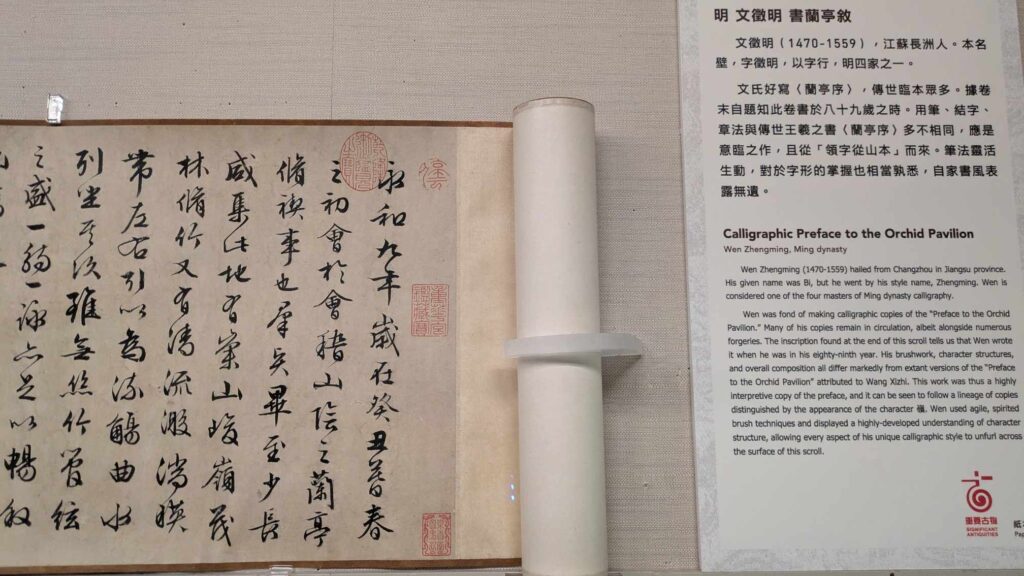 永和九年歲在癸丑暮春
之初會於會稽山陰之蘭亭
脩禊事也羣賢畢至少長
咸集此地有崇山峻嶺茂
林脩竹又有清流激湍暎
帶左右引以為流觴曲水
列坐其次雖無絲竹管絃
之盛一觴一詠亦足以暢叙
明 文徵明 書蘭亭敘
文徵明(1470-1559),江蘇長洲人。本名
壁,字徵明,以字行,明四家之一。
文氏好寫〈蘭亭序〉,傳世臨本眾多。據卷
末自題知此卷書於八十九歲之時。用筆、結字、
章法與傳世王羲之書〈蘭亭序〉多不相同,應是
意臨之作,且從「領字從山本」而來。筆法靈活
生動,對於字形的掌握也相當孰悉,自家書風表
露無遺。
Calligraphic Preface to the Orchid Pavilion
Wen Zhengming, Ming dynasty
Wen Zhengming (1470-1559) hailed from Changzhou in Jiangsu province.
His given name was Bi, but he went by his style name, Zhengming. Wen is
considered one of the four masters of Ming dynasty calligraphy.
Wen was fond of making calligraphic copies of the "Preface to the Orchid
Pavilion." Many of his copies remain in circulation, albeit alongside numerous
forgeries. The inscription found at the end of this scroll tells us that Wen wrote
it when he was in his eighty-ninth year. His brushwork, character structures,
and overall composition all differ markedly from extant versions of the "Preface
to the Orchid Pavilion" attributed to Wang Xizhi. This work was thus a highly
interpretive copy of the preface, and it can be seen to follow a lineage of copies
distinguished by the appearance of the character . Wen used agile, spirited
brush techniques and displayed a highly-developed understanding of character
structure, allowing every aspect of his unique calligraphic style to unfurl across
the surface of this scroll.
重要古物
SIGNIFICANT
ANTIQUITIES
紙